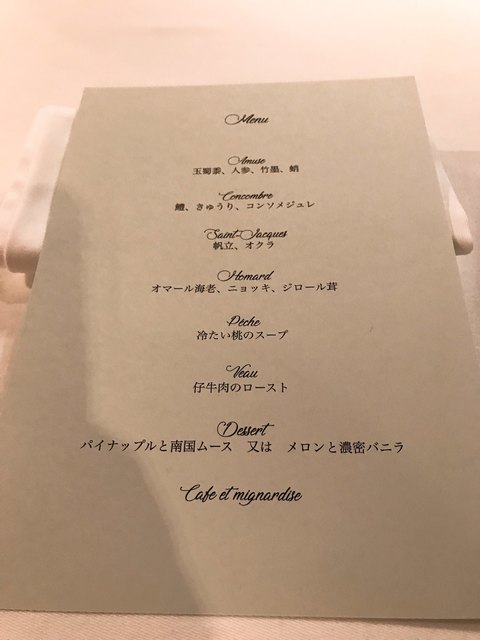 Menu
Amuse
玉蜀黍、人参、竹墨、蛸
Concombre
鱧、きゅうり、コンソメジュレ
Saint-Jacques
帆立、オクラ
Homard
オマール海老、ニョッキ、ジロール茸
Pêche
冷たい桃のスープ
Veau
仔牛肉のロースト
Dessert
パイナップルと南国ムース 又は メロンと濃密バニラ
Cafe et mignardise